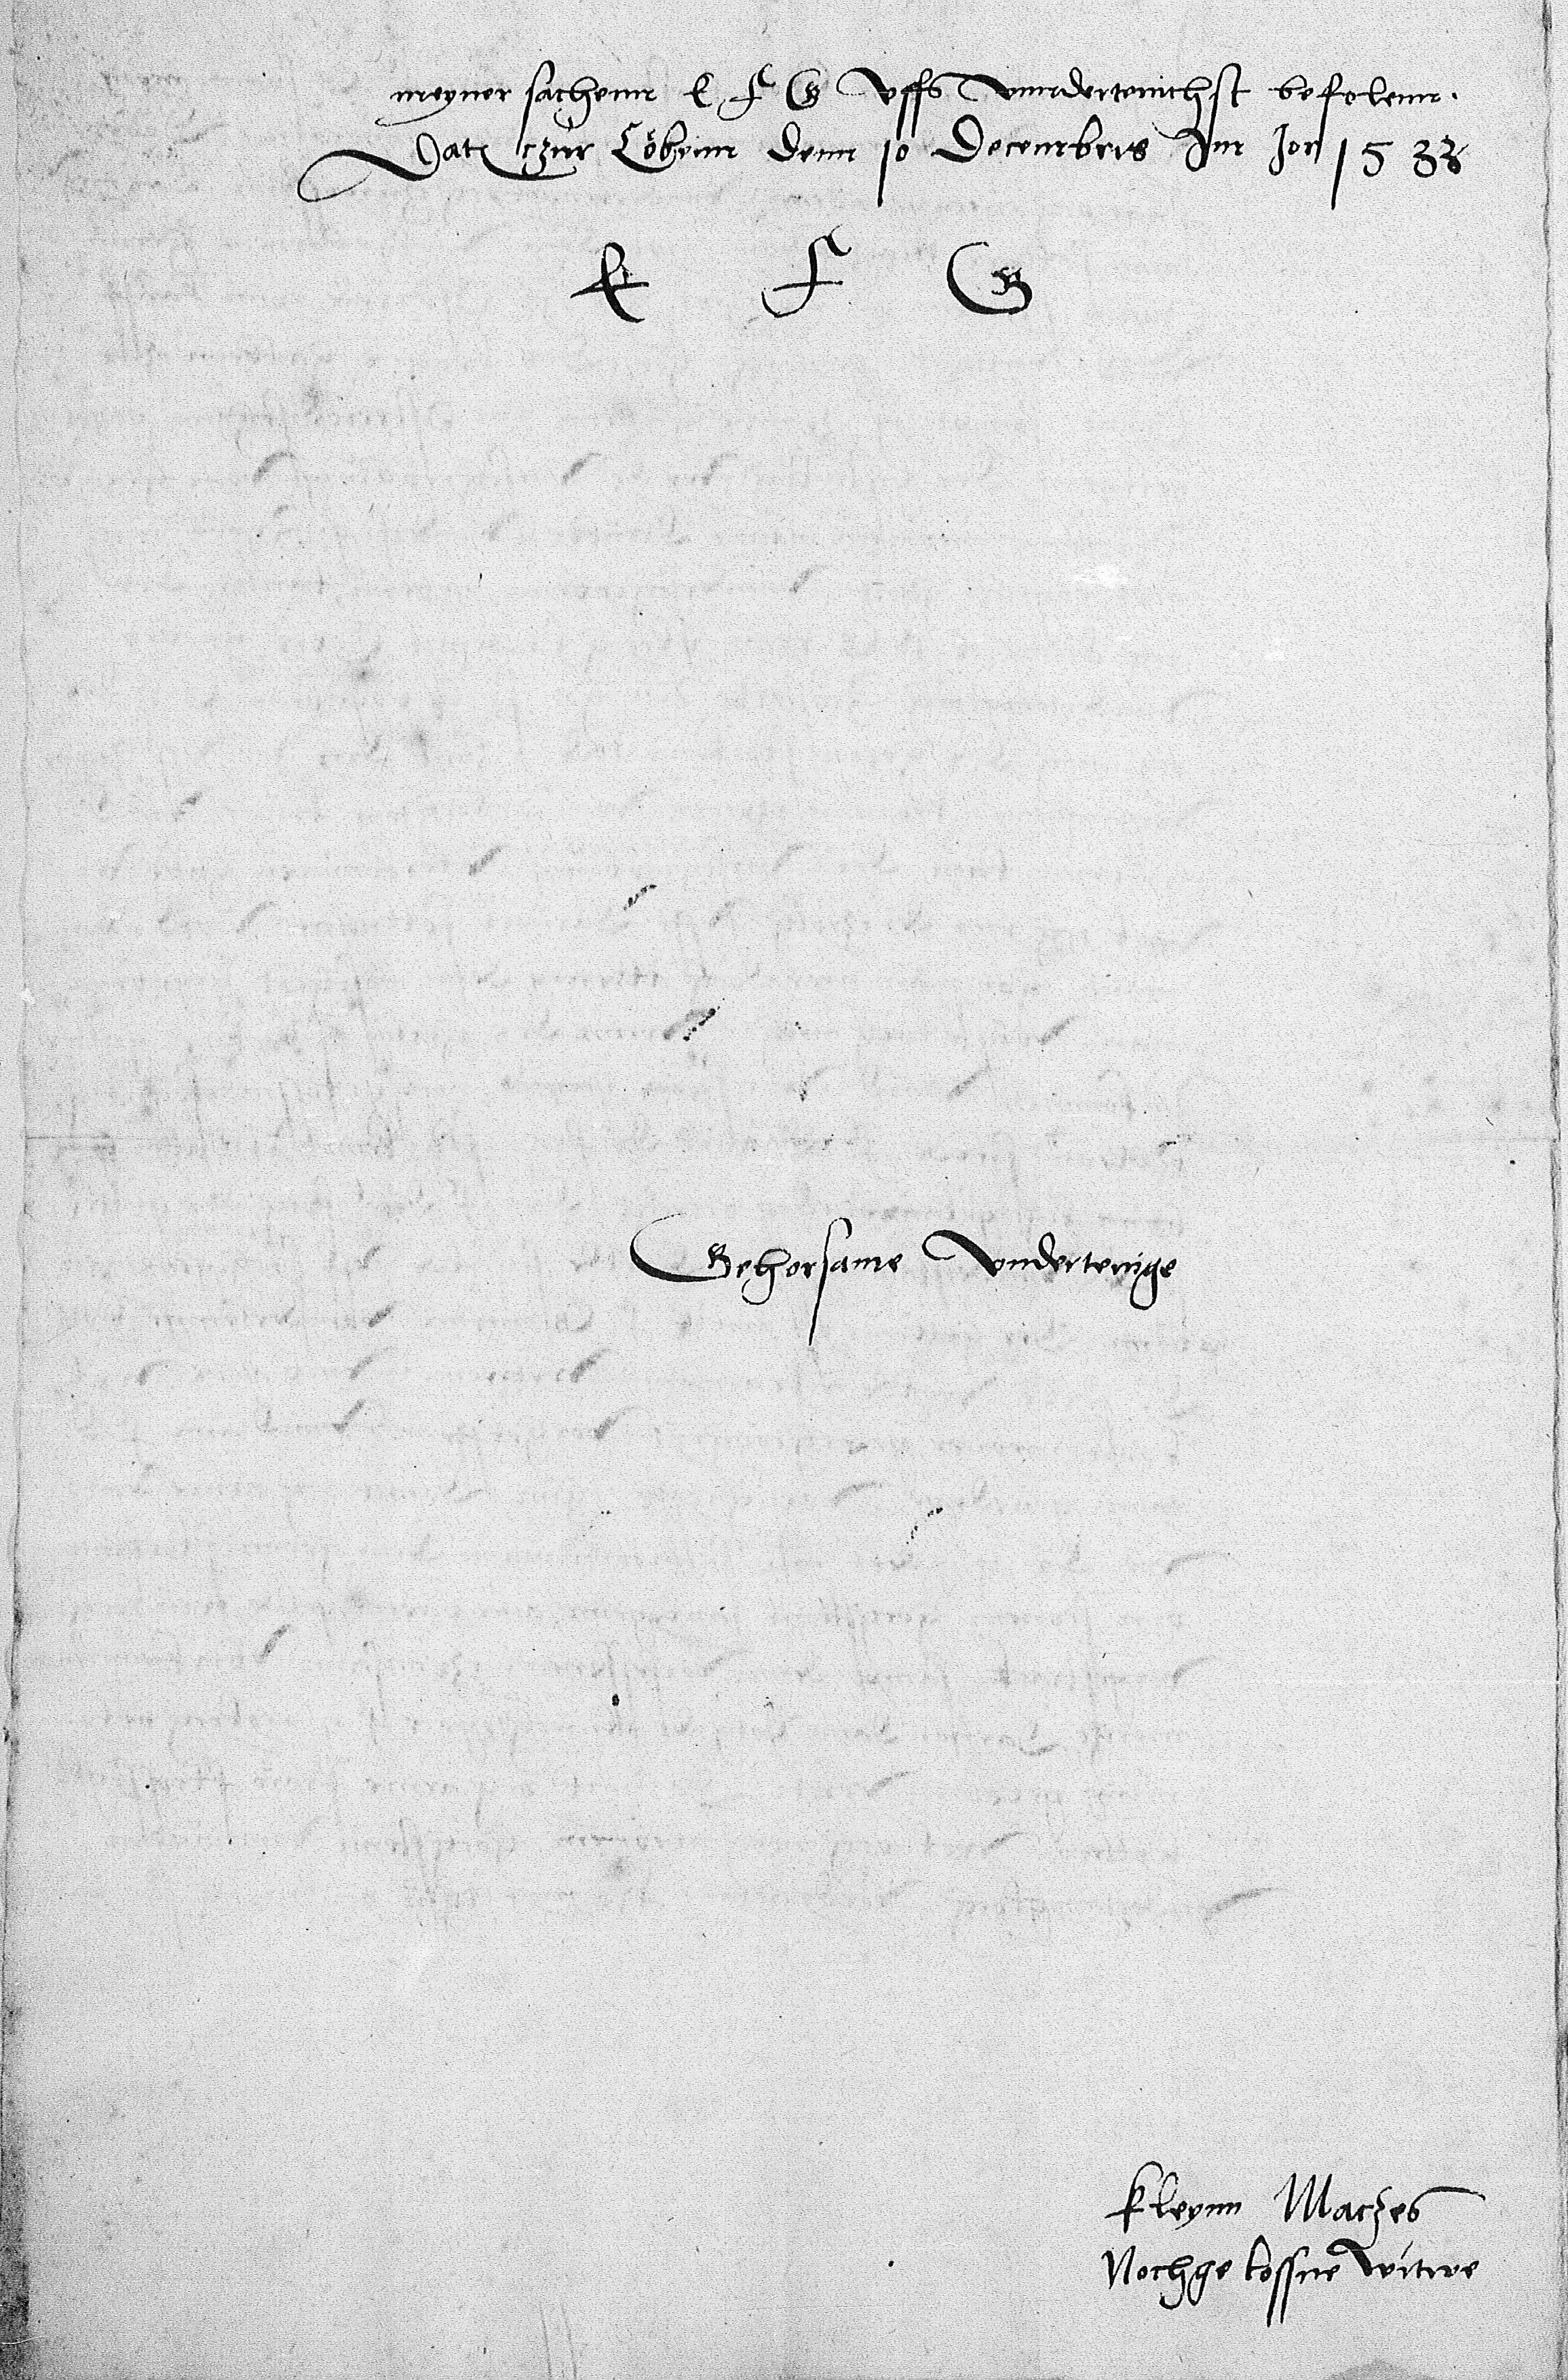 meyner sachenn E F G Uffs unnderteinichst befolenn.
Dat czur Löbenn denn 10 Decembris Im Jor 1533
E F G
Gehorsame undertenige
Kleynn Maczes
Nochgelossne witwe